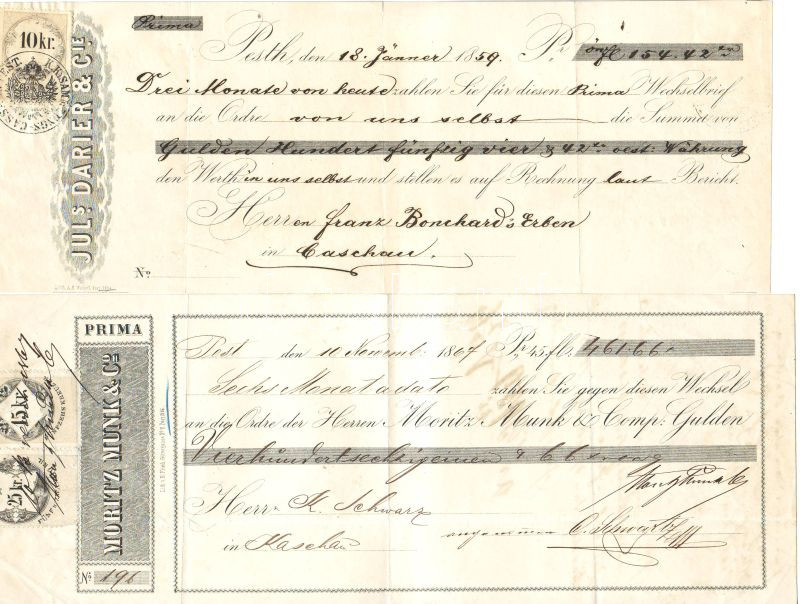 10 kr.
JULS. DARIER & CIE
Prima
Pesth, den 18. Jänner 1859. Pr. öfl 154.42 xr
Drei Monate von heute zahlen Sie für diesen Prima Wechselbrief
an die Ordre von uns selbst die Summa von
Gulden Hundert fünftig vier & 42 xr oest: Währung
den Werth in uns selbst und stellen es auf Rechnung laut Bericht.
Herren franz Bonchard's Erben
in Caschau.
No.
PRIMA
MORITZ MUNK & CO
No. 191
15 kr.
25 kr.
Pest den 10 Novemb: 1867 Pr. 45 fl. 461.66
Sechs Monat a dato zahlen Sie gegen diesen Wechsel
an die Ordre der Herren Moritz Munk & Comp: Gulden
Vierhundertsechzigeinen & 66
Herr K. Schwarz
in Kaschau
angenommen